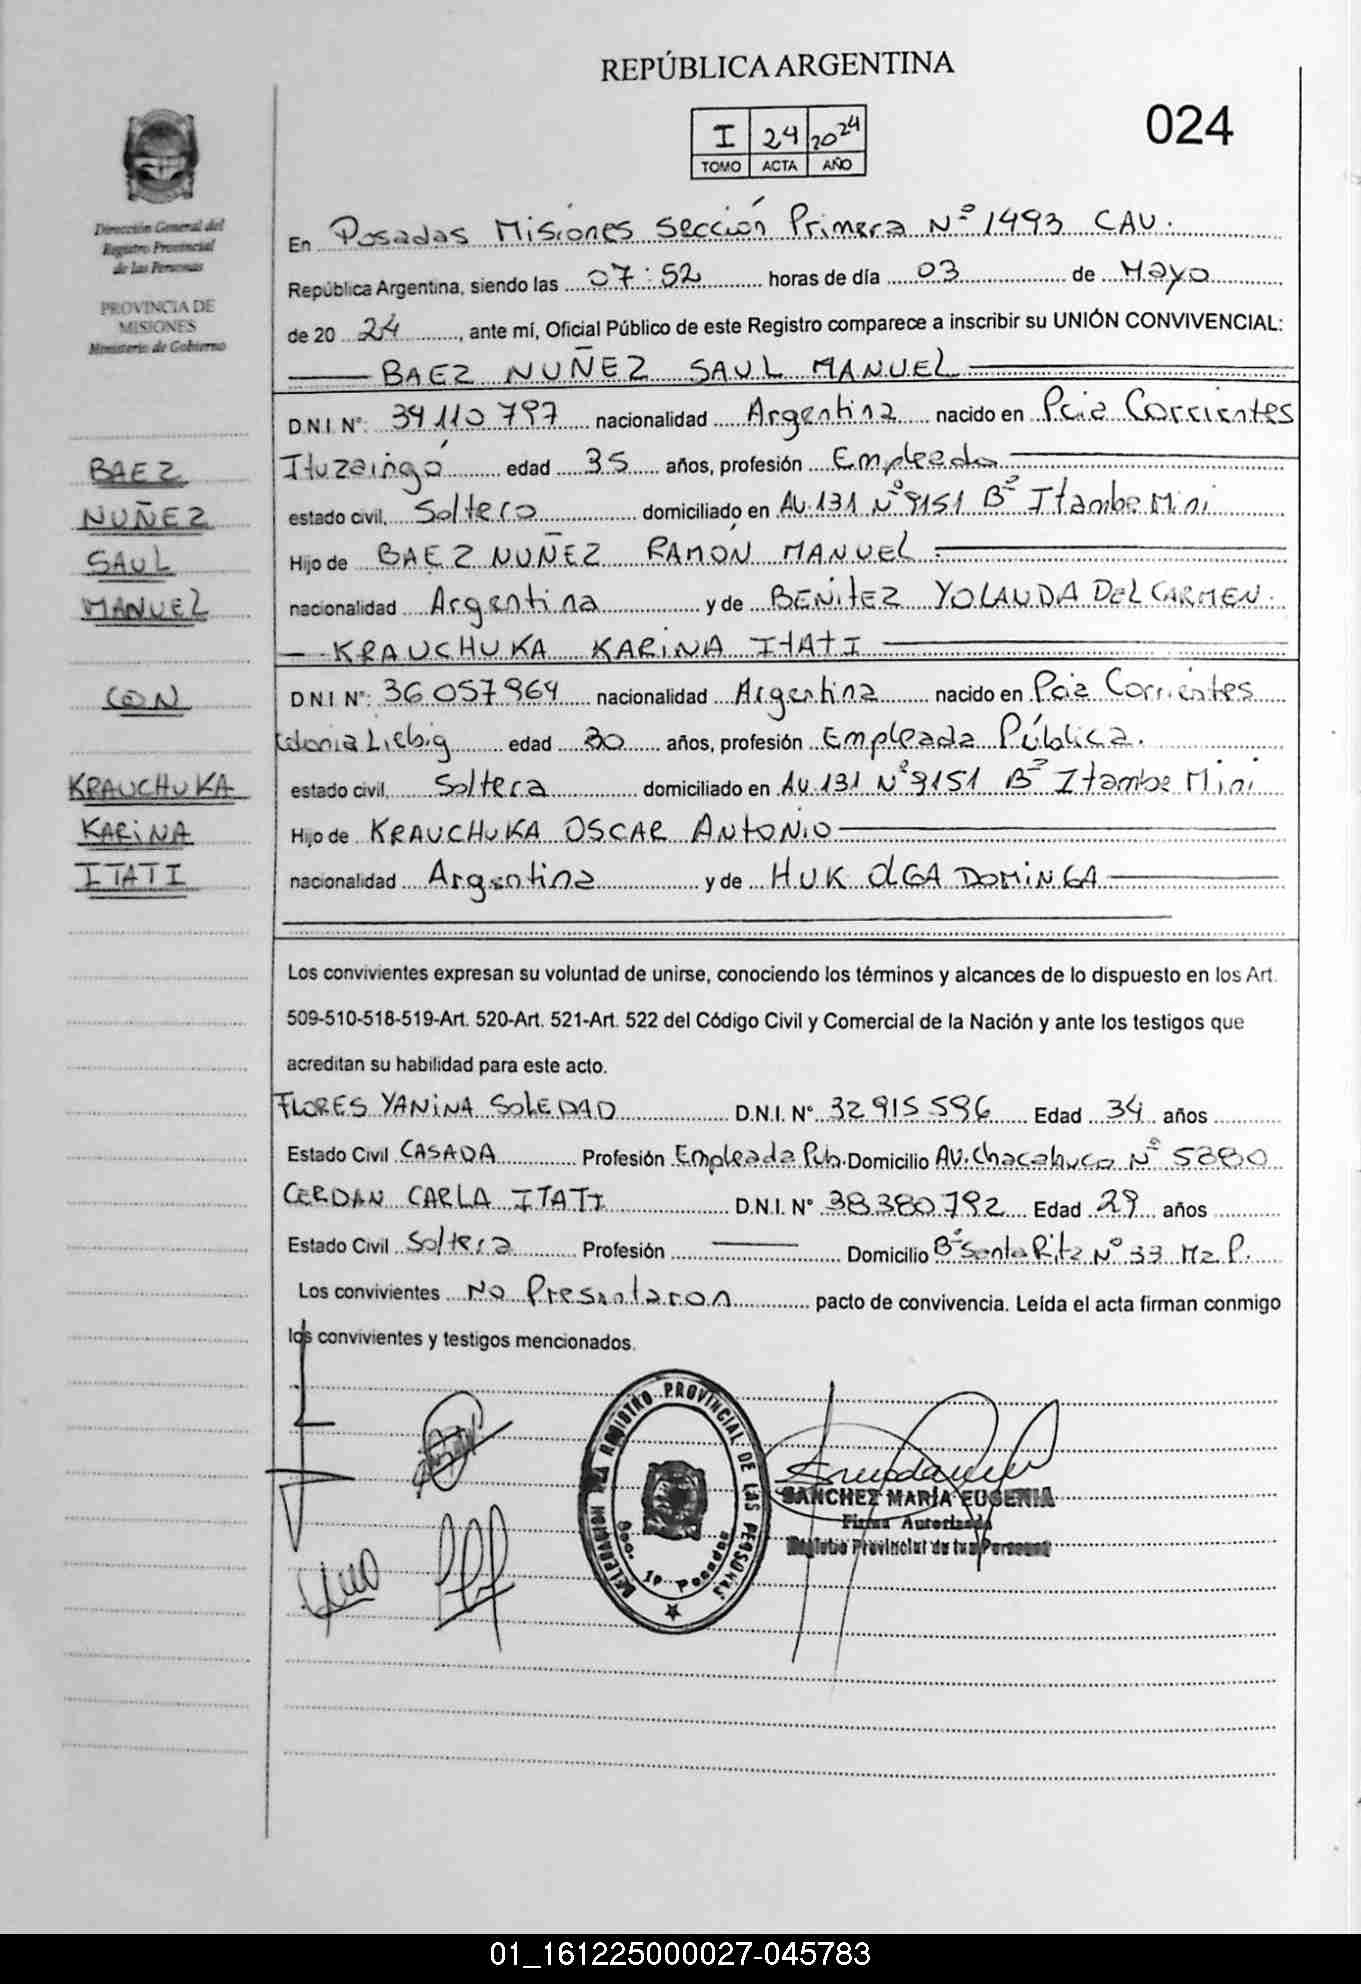 REPÚBLICA ARGENTINA
024
I 24 2024
TOMO ACTA AÑO
Dirección General del
Registro Provincial
de las Personas
PROVINCIA DE
MISIONES
Ministerio de Gobierno
En Posadas Misiones Sección Primera Nº 1493 CAV.
República Argentina, siendo las 07:52 horas de día 03 de Mayo
de 20 24, ante mí, Oficial Público de este Registro comparece a inscribir su UNIÓN CONVIVENCIAL:
BAEZ NUÑEZ SAUL MANUEL
D.N.I. Nº: 34 110 797 nacionalidad Argentina nacido en Pcia Corrientes
Ituzaingó edad 35 años, profesión Empleado
estado civil, Soltero domiciliado en AV. 131 Nº 9151 Bº Itambe Mini
Hijo de BAEZ NUÑEZ RAMÓN MANUEL
nacionalidad Argentina y de BENITEZ YOLANDA DEL CARMEN.
KRAUCHUKA KARINA ITATI
D.N.I. Nº: 36.057.964 nacionalidad Argentina nacido en Pcia Corrientes
Colonia Liebig edad 30 años, profesión Empleada Pública.
estado civil, Soltera domiciliado en AV. 131 Nº 9151 Bº Itambe Mini
Hijo de KRAUCHUKA OSCAR ANTONIO
nacionalidad Argentina y de HUK OLGA DOMINGA
BAEZ
NUÑEZ
SAUL
MANUEL
CON
KRAUCHUKA
KARINA
ITATI
Los convivientes expresan su voluntad de unirse, conociendo los términos y alcances de lo dispuesto en los Art.
509-510-518-519-Art. 520-Art. 521-Art. 522 del Código Civil y Comercial de la Nación y ante los testigos que
acreditan su habilidad para este acto.
FLORES YANINA SOLEDAD D.N.I. Nº 32.915.596 Edad 34 años
Estado Civil CASADA Profesión Empleada Pub. Domicilio AV. Chacabuco Nº 5380
CERDAN CARLA ITATI D.N.I. Nº 38.380.792 Edad 29 años
Estado Civil Soltera Profesión Domicilio Bº Santa Rita Nº 33 Mz P.
Los convivientes No Presentaron pacto de convivencia. Leída el acta firman conmigo
los convivientes y testigos mencionados.
REGISTRO PROVINCIAL DE LAS PERSONAS
Sec. 1º Posadas
SANCHEZ MARÍA EUGENIA
Firma Autorizada
Registro Provincial de las Personas
01_161225000027-045783